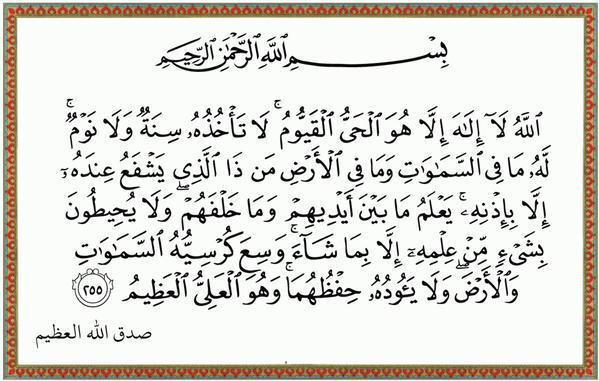 بِسْمِ اللَّهِ الرَّحْمَٰنِ الرَّحِيمِ
اللَّهُ لَآ إِلَٰهَ إِلَّا هُوَ الْحَيُّ الْقَيُّومُ ۚ لَا تَأْخُذُهُۥ سِنَةٌ وَلَا نَوْمٌ ۚ
لَّهُۥ مَا فِي السَّمَٰوَٰتِ وَمَا فِي الْأَرْضِ مَن ذَا الَّذِي يَشْفَعُ عِندَهُۥٓ
إِلَّا بِإِذْنِهِۦ ۚ يَعْلَمُ مَا بَيْنَ أَيْدِيهِمْ وَمَا خَلْفَهُمْ ۖ وَلَا يُحِيطُونَ
بِشَيْءٍ مِّنْ عِلْمِهِۦٓ إِلَّا بِمَا شَآءَ ۚ وَسِعَ كُرْسِيُّهُ السَّمَٰوَٰتِ
وَالْأَرْضَ ۖ وَلَا يَـُٔودُهُۥ حِفْظُهُمَا ۚ وَهُوَ الْعَلِيُّ الْعَظِيمُ ٢٥٥
صدق الله العظيم